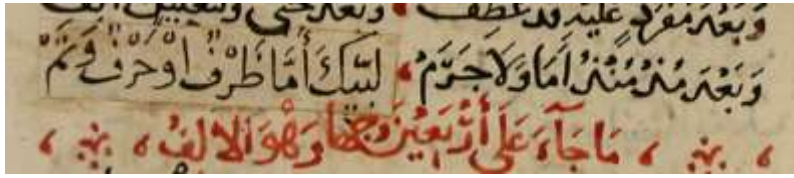 وَبَعْدَ مُفْرَدٍ عَلَيْهِ قَدْ عَطَفْ ، وَبَعْدَ حَتَّى
وَبَعْدَ مُذْ مُنْذُ أَمَا وَلَا جَرَمْ ، لَبَّيْكَ أَمَّا ظَرْفٌ أَوْ حَرْفٌ وَتَمّْ
، مَا جَآءَ عَلَى أَرْبَعِينَ وَجْهًا وَهْوَ الْالِفُ ،